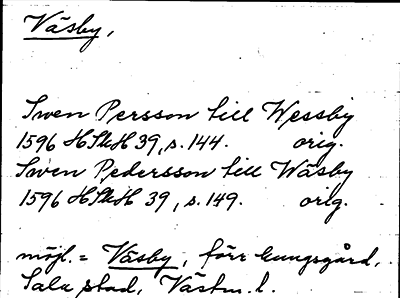 Väsby,
Swen Persson till Wessby
1596 HSkH 39, s. 144. orig.
Swen Pedersson till Wäsby
1596 HSkH 39, s. 149. orig.
möjl. = Väsby, förr kungsgård,
Sala stad, Västm. l.